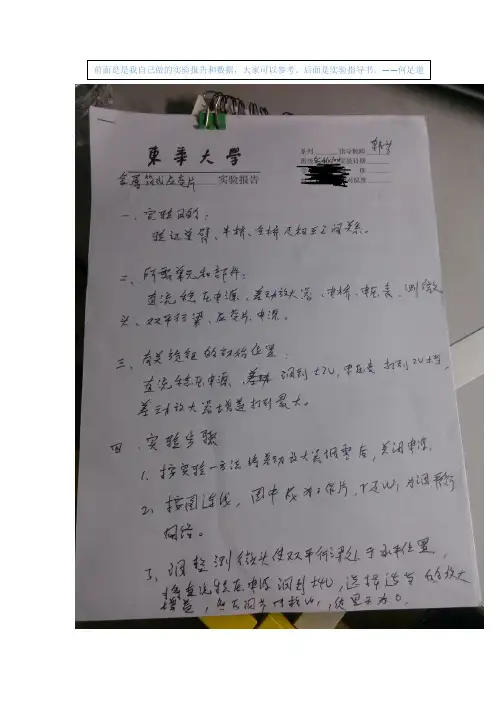 前面是是我自己做的实验报告和数据，大家可以参考。后面是实验指导书。——何足道
東華大學
系列 指导教师
实验日期
金属箔式应变片 实验报告
一、实验目的：
验证单臂、半桥、全桥 及相互之间关系。
二、所需单元和部件：
直流稳压电源、差动放大器、电桥、电压表、测微
头、双平行梁、应变片、电源。
三、有关旋钮的初始位置：
直流稳压电源 调到±2V，电压表 打到2V档，
差动放大器增益打到最大。
四、实验步骤
1、按实验一方法将差动放大器调零后，关闭电源。
2、按图连线，图中 工作片，r及W1为调平衡
网络。
3、调整测微头使双平行梁处于水平位置，
将直流稳压电源调到±4V，选择适当的放大
增益，然后调节 W1，使 示为0。